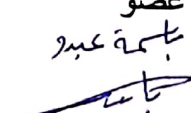 عضو
باسمة عبدو